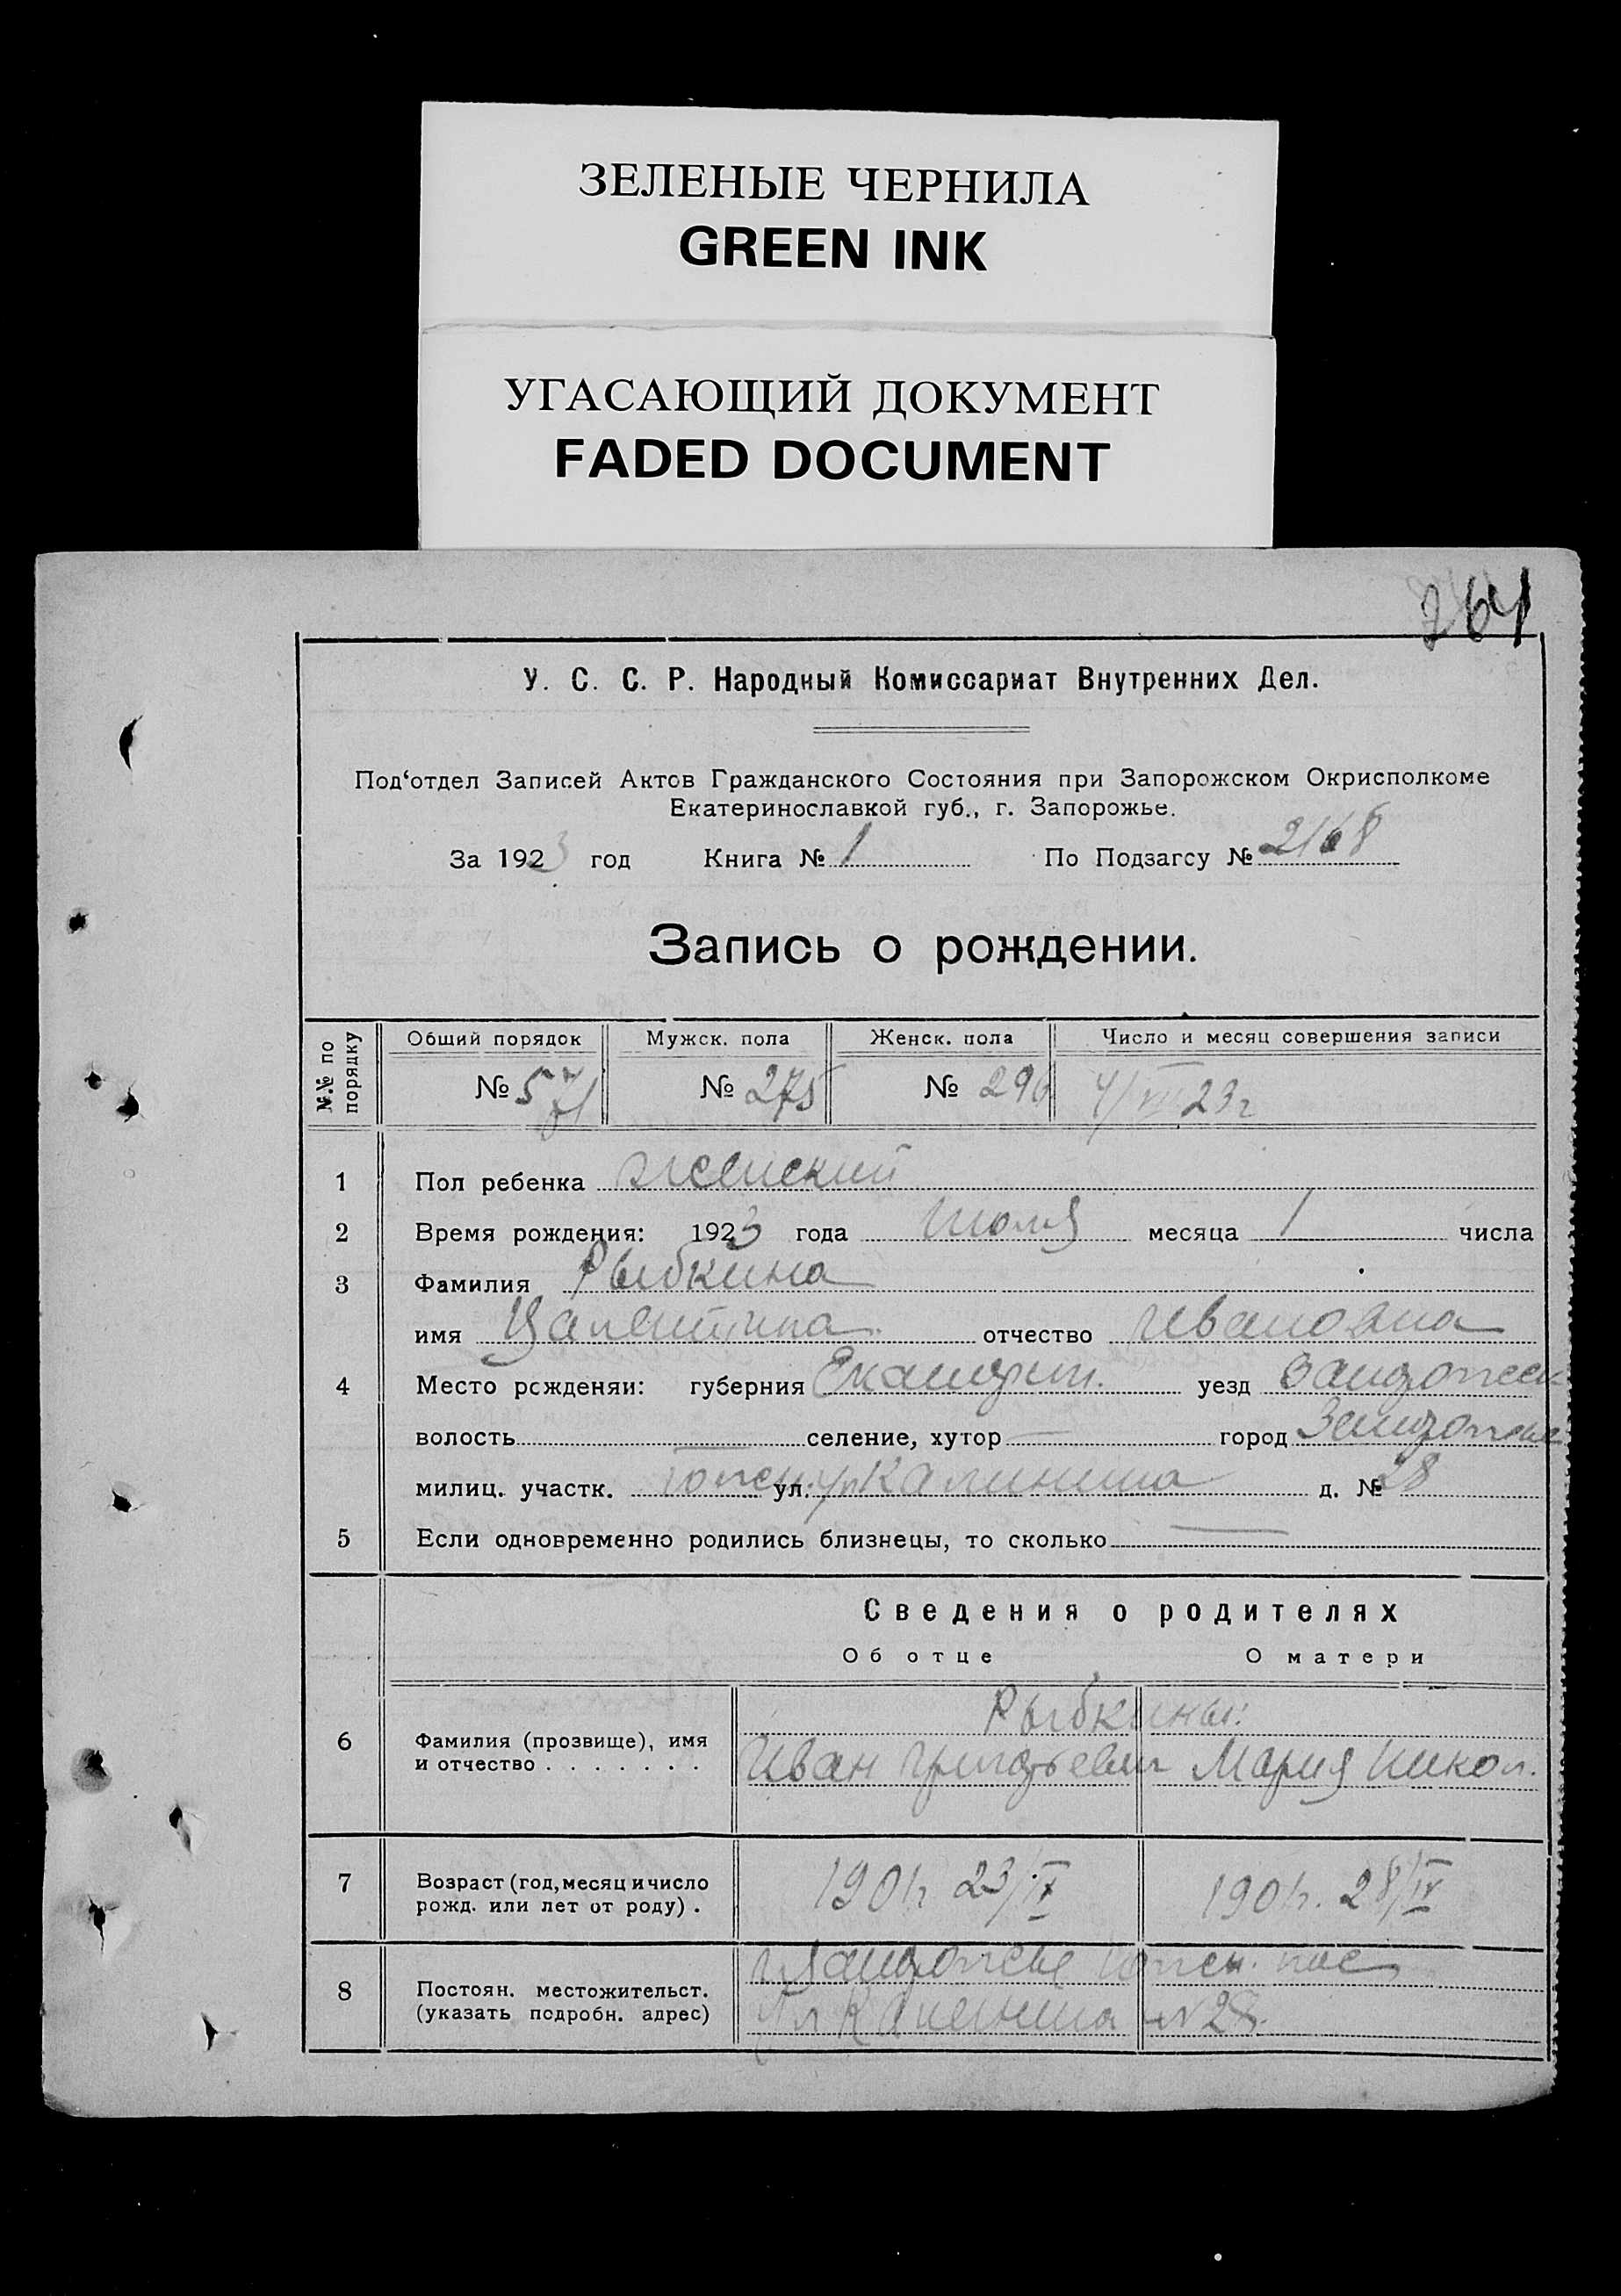 ЗЕЛЕНЫЕ ЧЕРНИЛА
GREEN INK
УГАСАЮЩИЙ ДОКУМЕНТ
FADED DOCUMENT
264
У. С. С. Р. Народный Комиссариат Внутренних Дел.
Под‘отдел Записей Актов Гражданского Состояния при Запорожском Окрисполкоме
Екатеринославкой губ., г. Запорожье.
За 1923 год Книга № 1 По Подзагсу № 2168
Запись о рождении.
№.№ по порядку Общий порядок Мужск. пола Женск. пола Число и месяц совершения записи
№ 571 № 275 № 296 4/VII 23 г
1 Пол ребенка женский
2 Время рождения: 1923 года Июля месяца 1 числа
3 Фамилия Рыбкина
имя Валентина отчество Ивановна
4 Место рожденяи: губерния уезд
волость — селение, хутор — город Запорожье
милиц. участк. Южен ул. Калинина д. № 28
5 Если одновременно родились близнецы, то сколько —
Сведения о родителях
Об отце О матери
Рыбкины:
6 Фамилия (прозвище), имя
и отчество . . . . . . . Иван Григорьевич Мария Никол.
7 Возраст (год, месяц и число
рожд. или лет от роду) . 1901г. 23/IX 1901г. 28/IV
8 г Запорожье Южен. пос
Постоян. местожительст.
(указать подробн. адрес) Ул Калинина №28.